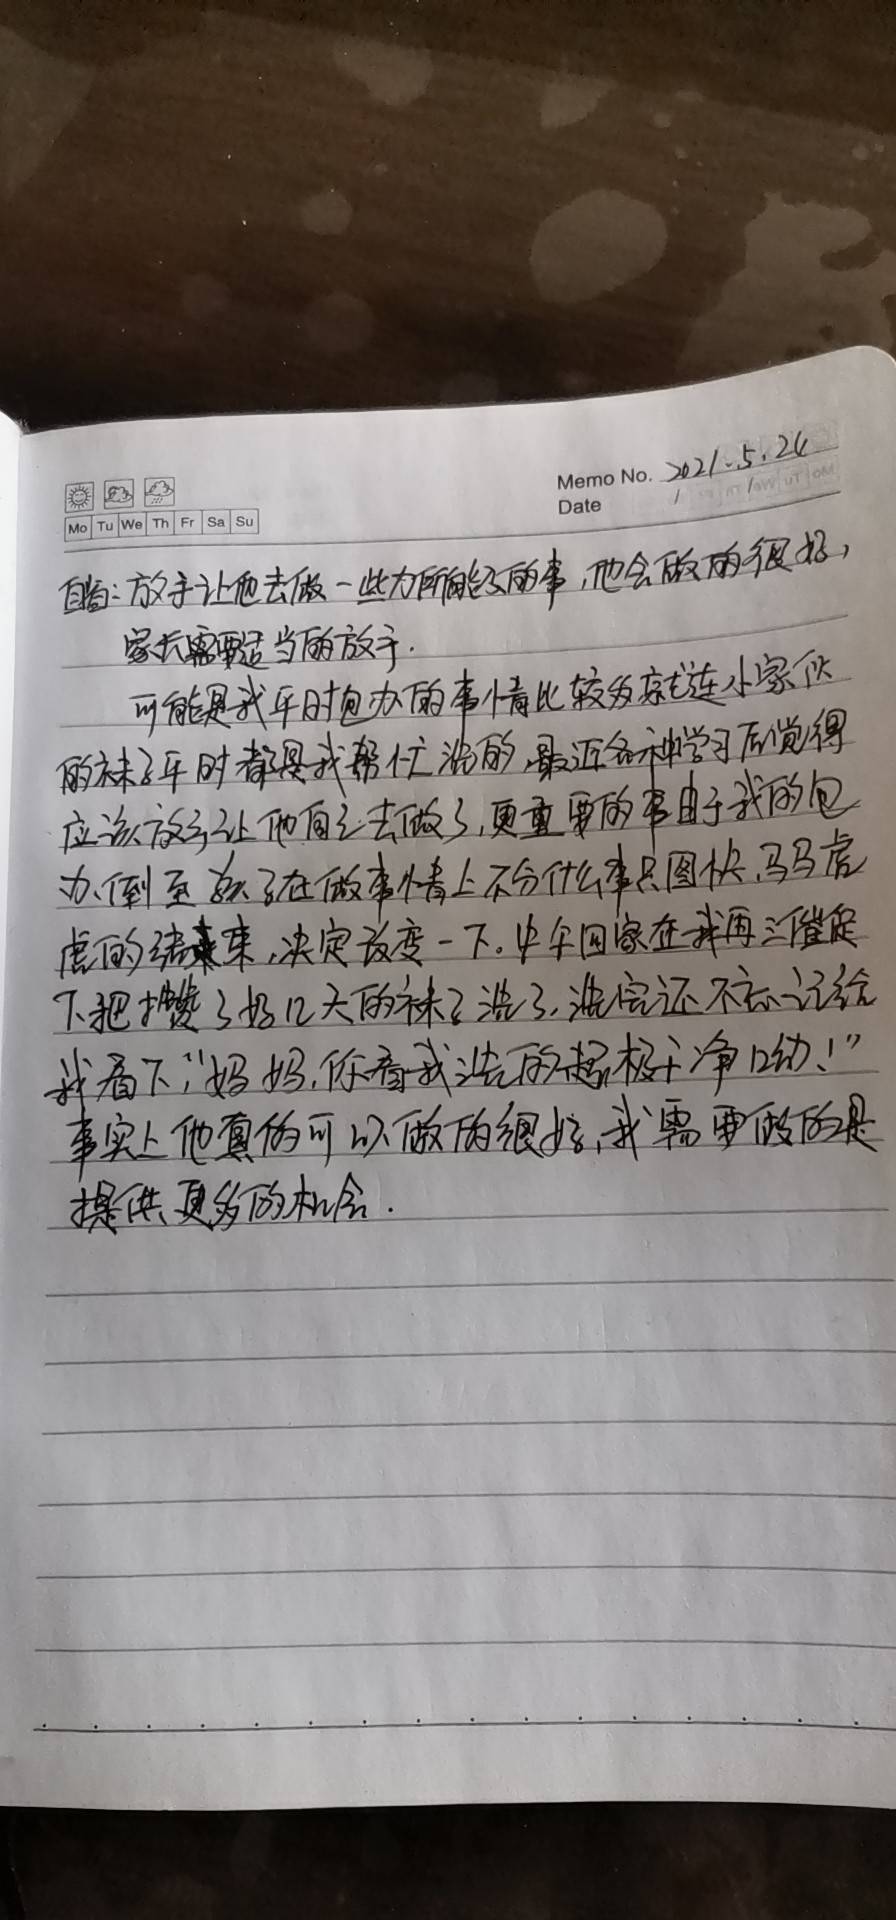 Memo No. 2021.5.24
Mo Tu We Th Fr Sa Su
Date / /
放手让他去做一些力所能及的事,他会做的很好,
家长需要适当的放手.
可能是我平时包办的事情比较多就连小家伙
的袜子平时都是我帮忙洗的,最近各种学习后觉得
应该放手让他自己去做了,更重要的事由于我的包
办,倒至孩子在做事情上不分什么事只图快,马马虎
虎的结束,决定改变一下。中午回家在我再三催促
下把攒了好几天的袜子洗了,洗完还不忘记给
我看下,“妈妈,你看我洗的超极干净口幼!”
事实上他真的可以做的很好,我需要做的是
提供更多的机会.